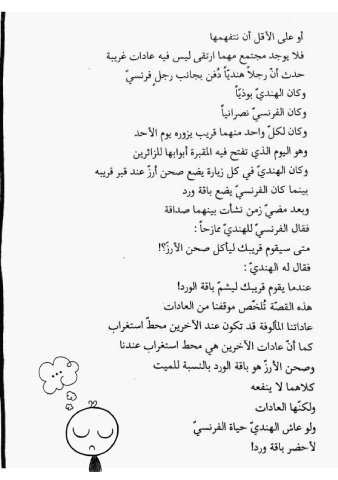 أو على الأقل أن نتفهمها
فلا يوجد مجتمع مهما ارتقى ليس فيه عادات غريبة
حدث أنّ رجلاً هنديّاً دُفن بجانب رجلٍ فرنسيّ
وكان الهنديّ بوذيّاً
وكان الفرنسيّ نصرانياً
وكان لكلّ واحد منهما قريب يزوره يوم الأحد
وهو اليوم الذي تفتح فيه المقبرة أبوابها للزائرين
وكان الهنديّ في كل زيارة يضع صحن أرزّ عند قبر قريبه
بينما كان الفرنسيّ يضع باقة ورد
وبعد مضيّ زمن نشأت بينهما صداقة
فقال الفرنسيّ للهنديّ مازحاً :
متى سيقوم قريبك ليأكل صحن الأرزّ؟!
فقال له الهنديّ :
عندما يقوم قريبك ليشمّ باقة الورد!
هذه القصّة تُلخّص موقفنا من العادات
عاداتنا المألوفة قد تكون عند الآخرين محطّ استغراب
كما أنّ عادات الآخرين هي محط استغراب عندنا
وصحن الأرزّ هو باقة الورد بالنسبة للميت
كلاهما لا ينفعه
ولكنّها العادات
ولو عاش الهنديّ حياة الفرنسيّ
لأحضر باقة ورد!